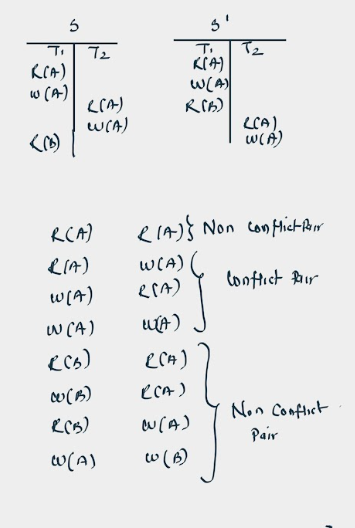 S S'
T1 T2 T1 T2
R(A) R(A)
W(A) W(A)
R(A) R(B)
W(A) R(A)
R(B) W(A)
R(A) R(A) } Non Conflict Pair
R(A) W(A)
W(A) R(A) Conflict Pair
W(A) W(A)
R(B) R(A)
W(B) R(A)
R(B) W(A) Non Conflict
Pair
W(A) W(B)